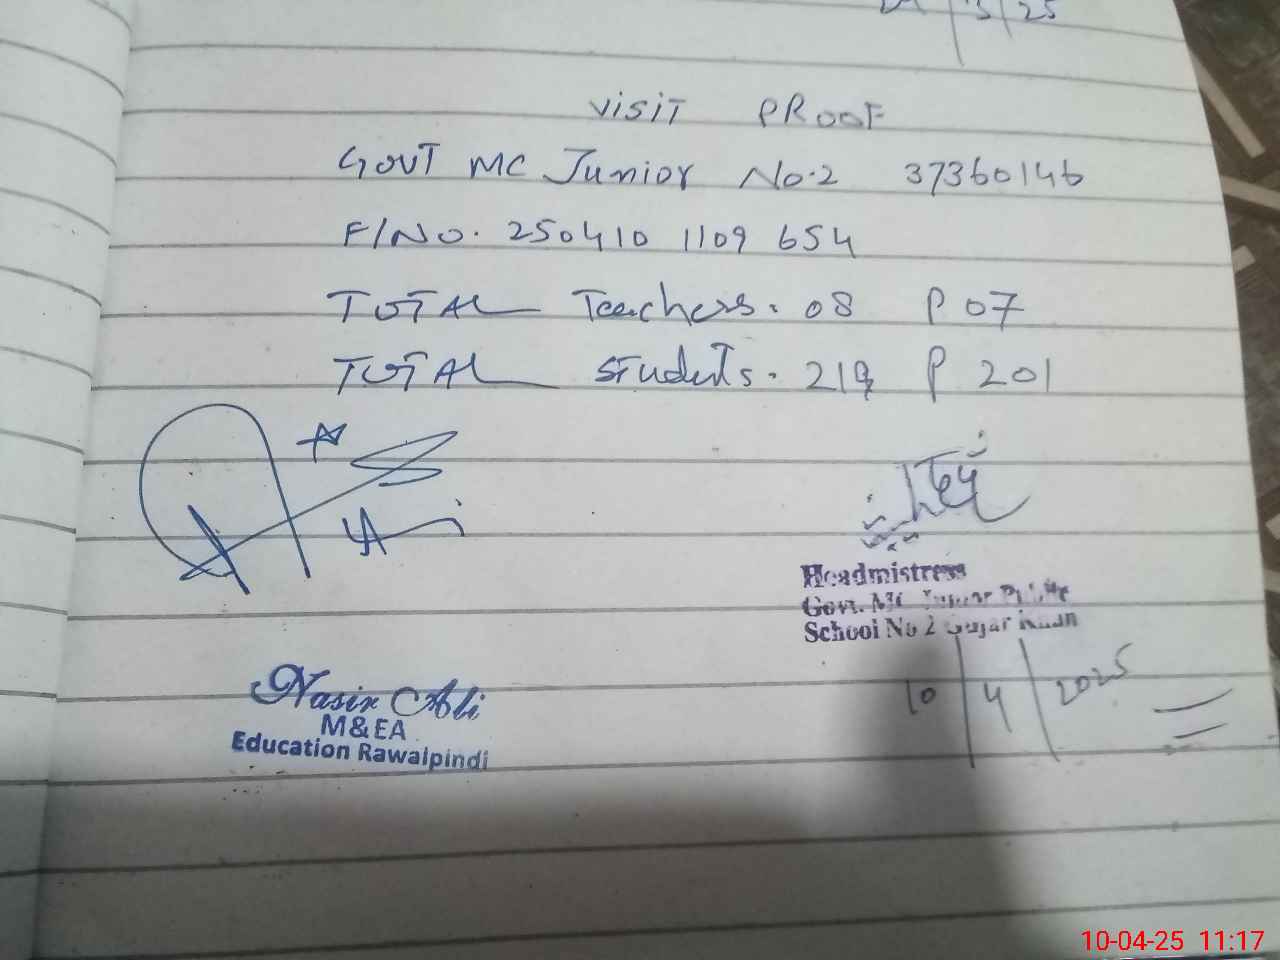 3 | 25
VISIT PROOF
GOVT MC Junior No.2 37360146
F/NO. 250410 1109 654
TOTAL Teachers. 08 P 07
TOTAL Students. 219 P 201
Headmistress
Govt. MC Junior Public
School No 2 Gujar Khan
10 | 4 | 2025
Nasir Ali
M&EA
Education Rawalpindi
10-04-25 11:17